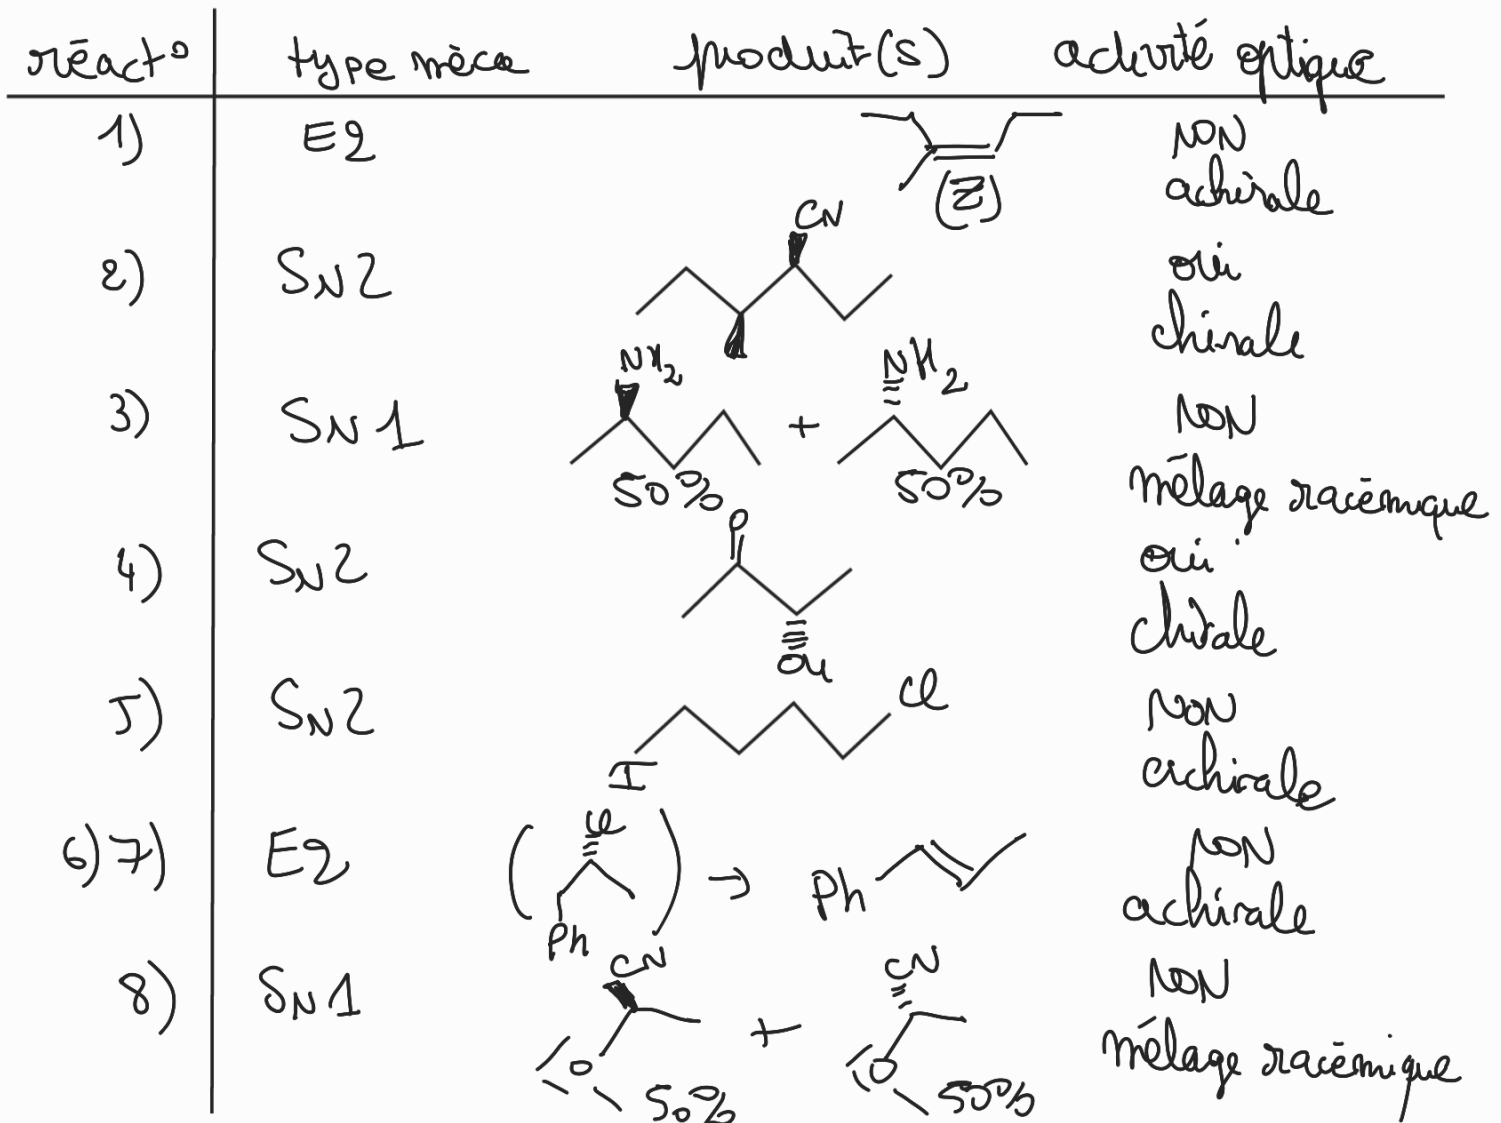 réact° type méca produit(s) activité optique
1) E2 (Z) NON
achirale
2) SN2 CN oui
chirale
3) SN1 NH2 + NH2 NON
50% 50% mélage racémique
4) SN2 O oui
OH chirale
5) SN2 Cl NON
I achirale
6)7) E2 ( Cl ) → Ph NON
Ph achirale
8) SN1 CN + CN NON
O 50% O 50% mélage racémique